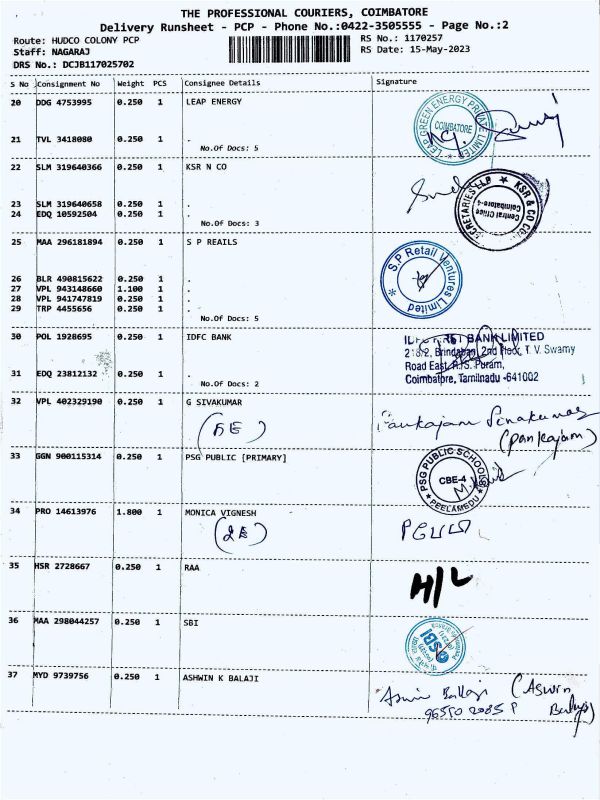 THE PROFESSIONAL COURIERS, COIMBATORE
Delivery Runsheet - PCP - Phone No.:0422-3505555 - Page No.:2
Route: HUDCO COLONY PCP
Staff: NAGARAJ
DRS No.: DCJB117025702
RS No.: 1170257
RS Date: 15-May-2023
S No Consignment No Weight PCS Consignee Details Signature
20 DDG 4753995 0.250 1 LEAP ENERGY
LEAP GREEN ENERGY PRIVATE LIMITED
COIMBATORE
21 TVL 3418080 0.250 1 .
No.Of Docs: 5
22 SLM 319640366 0.250 1 KSR N CO
KSR & CO COMPANY SECRETARIES LLP
Central Office
Coimbatore-4
23 SLM 319640658 0.250 1 .
24 EDQ 10592504 0.250 1 .
No.Of Docs: 3
25 MAA 296181894 0.250 1 S P REAILS
S.P Retail Ventures Limited
26 BLR 490815622 0.250 1 .
27 VPL 943148660 1.100 1 .
28 VPL 941747819 0.250 1 .
29 TRP 4455656 0.250 1 .
No.Of Docs: 5
30 POL 1928695 0.250 1 IDFC BANK
IDFC FIRST BANK LIMITED
218/2, Brindaban, 2nd Floor, T. V. Swamy
Road East, R.S. Puram,
Coimbatore, Tamilnadu -641002
31 EDQ 23812132 0.250 1 .
No.Of Docs: 2
32 VPL 402329190 0.250 1 G SIVAKUMAR
Pankajam Sivakumar
(Pankajam)
33 GGN 900115314 0.250 1 PSG PUBLIC [PRIMARY]
PSG PUBLIC SCHOOLS
CBE-4
PEELAMEDU
34 PRO 14613976 1.800 1 MONICA VIGNESH
35 HSR 2728667 0.250 1 RAA
H/L
36 MAA 298044257 0.250 1 SBI
SBI
37 MYD 9739756 0.250 1 ASHWIN K BALAJI
Aswin Ballaji (Aswin